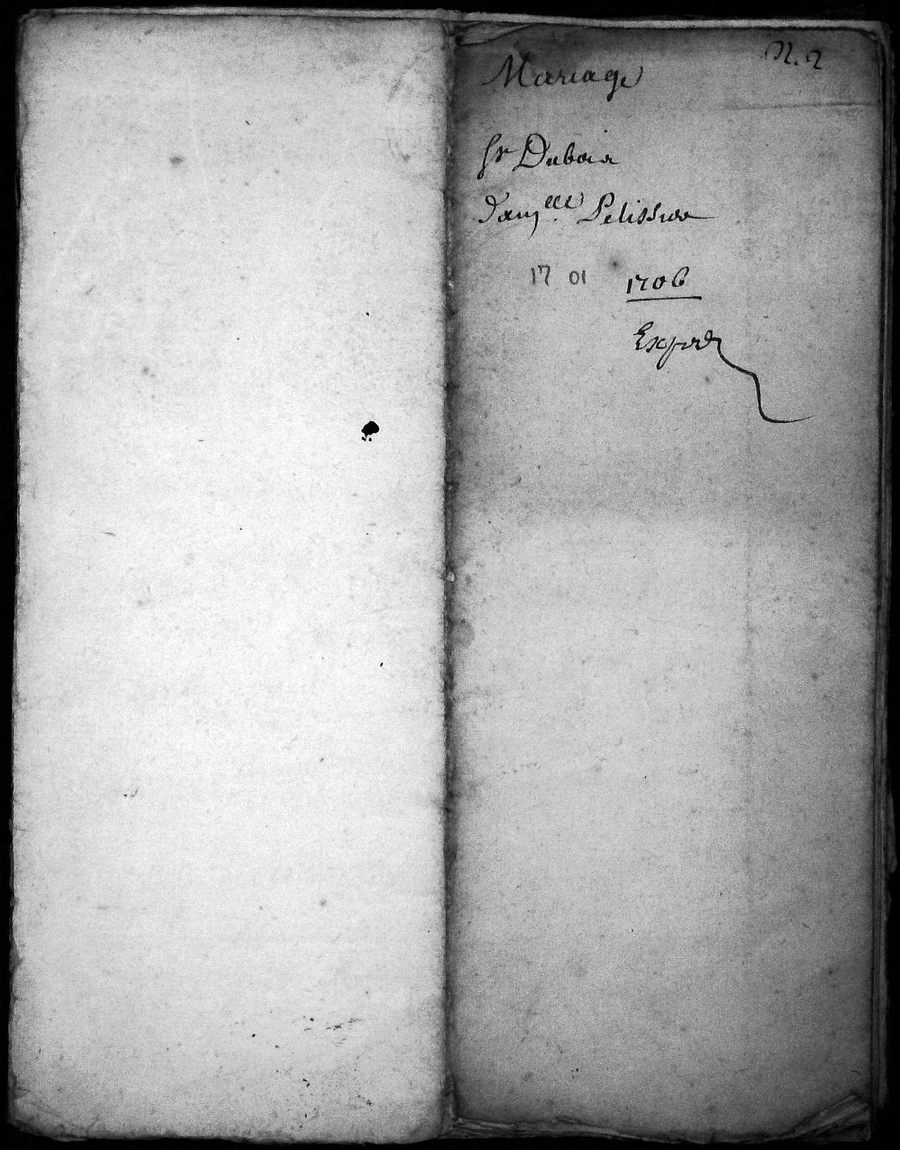 N. 2
Mariage
Sr Dubois
Dam.elle Pelissier
17 01 1706
Exped